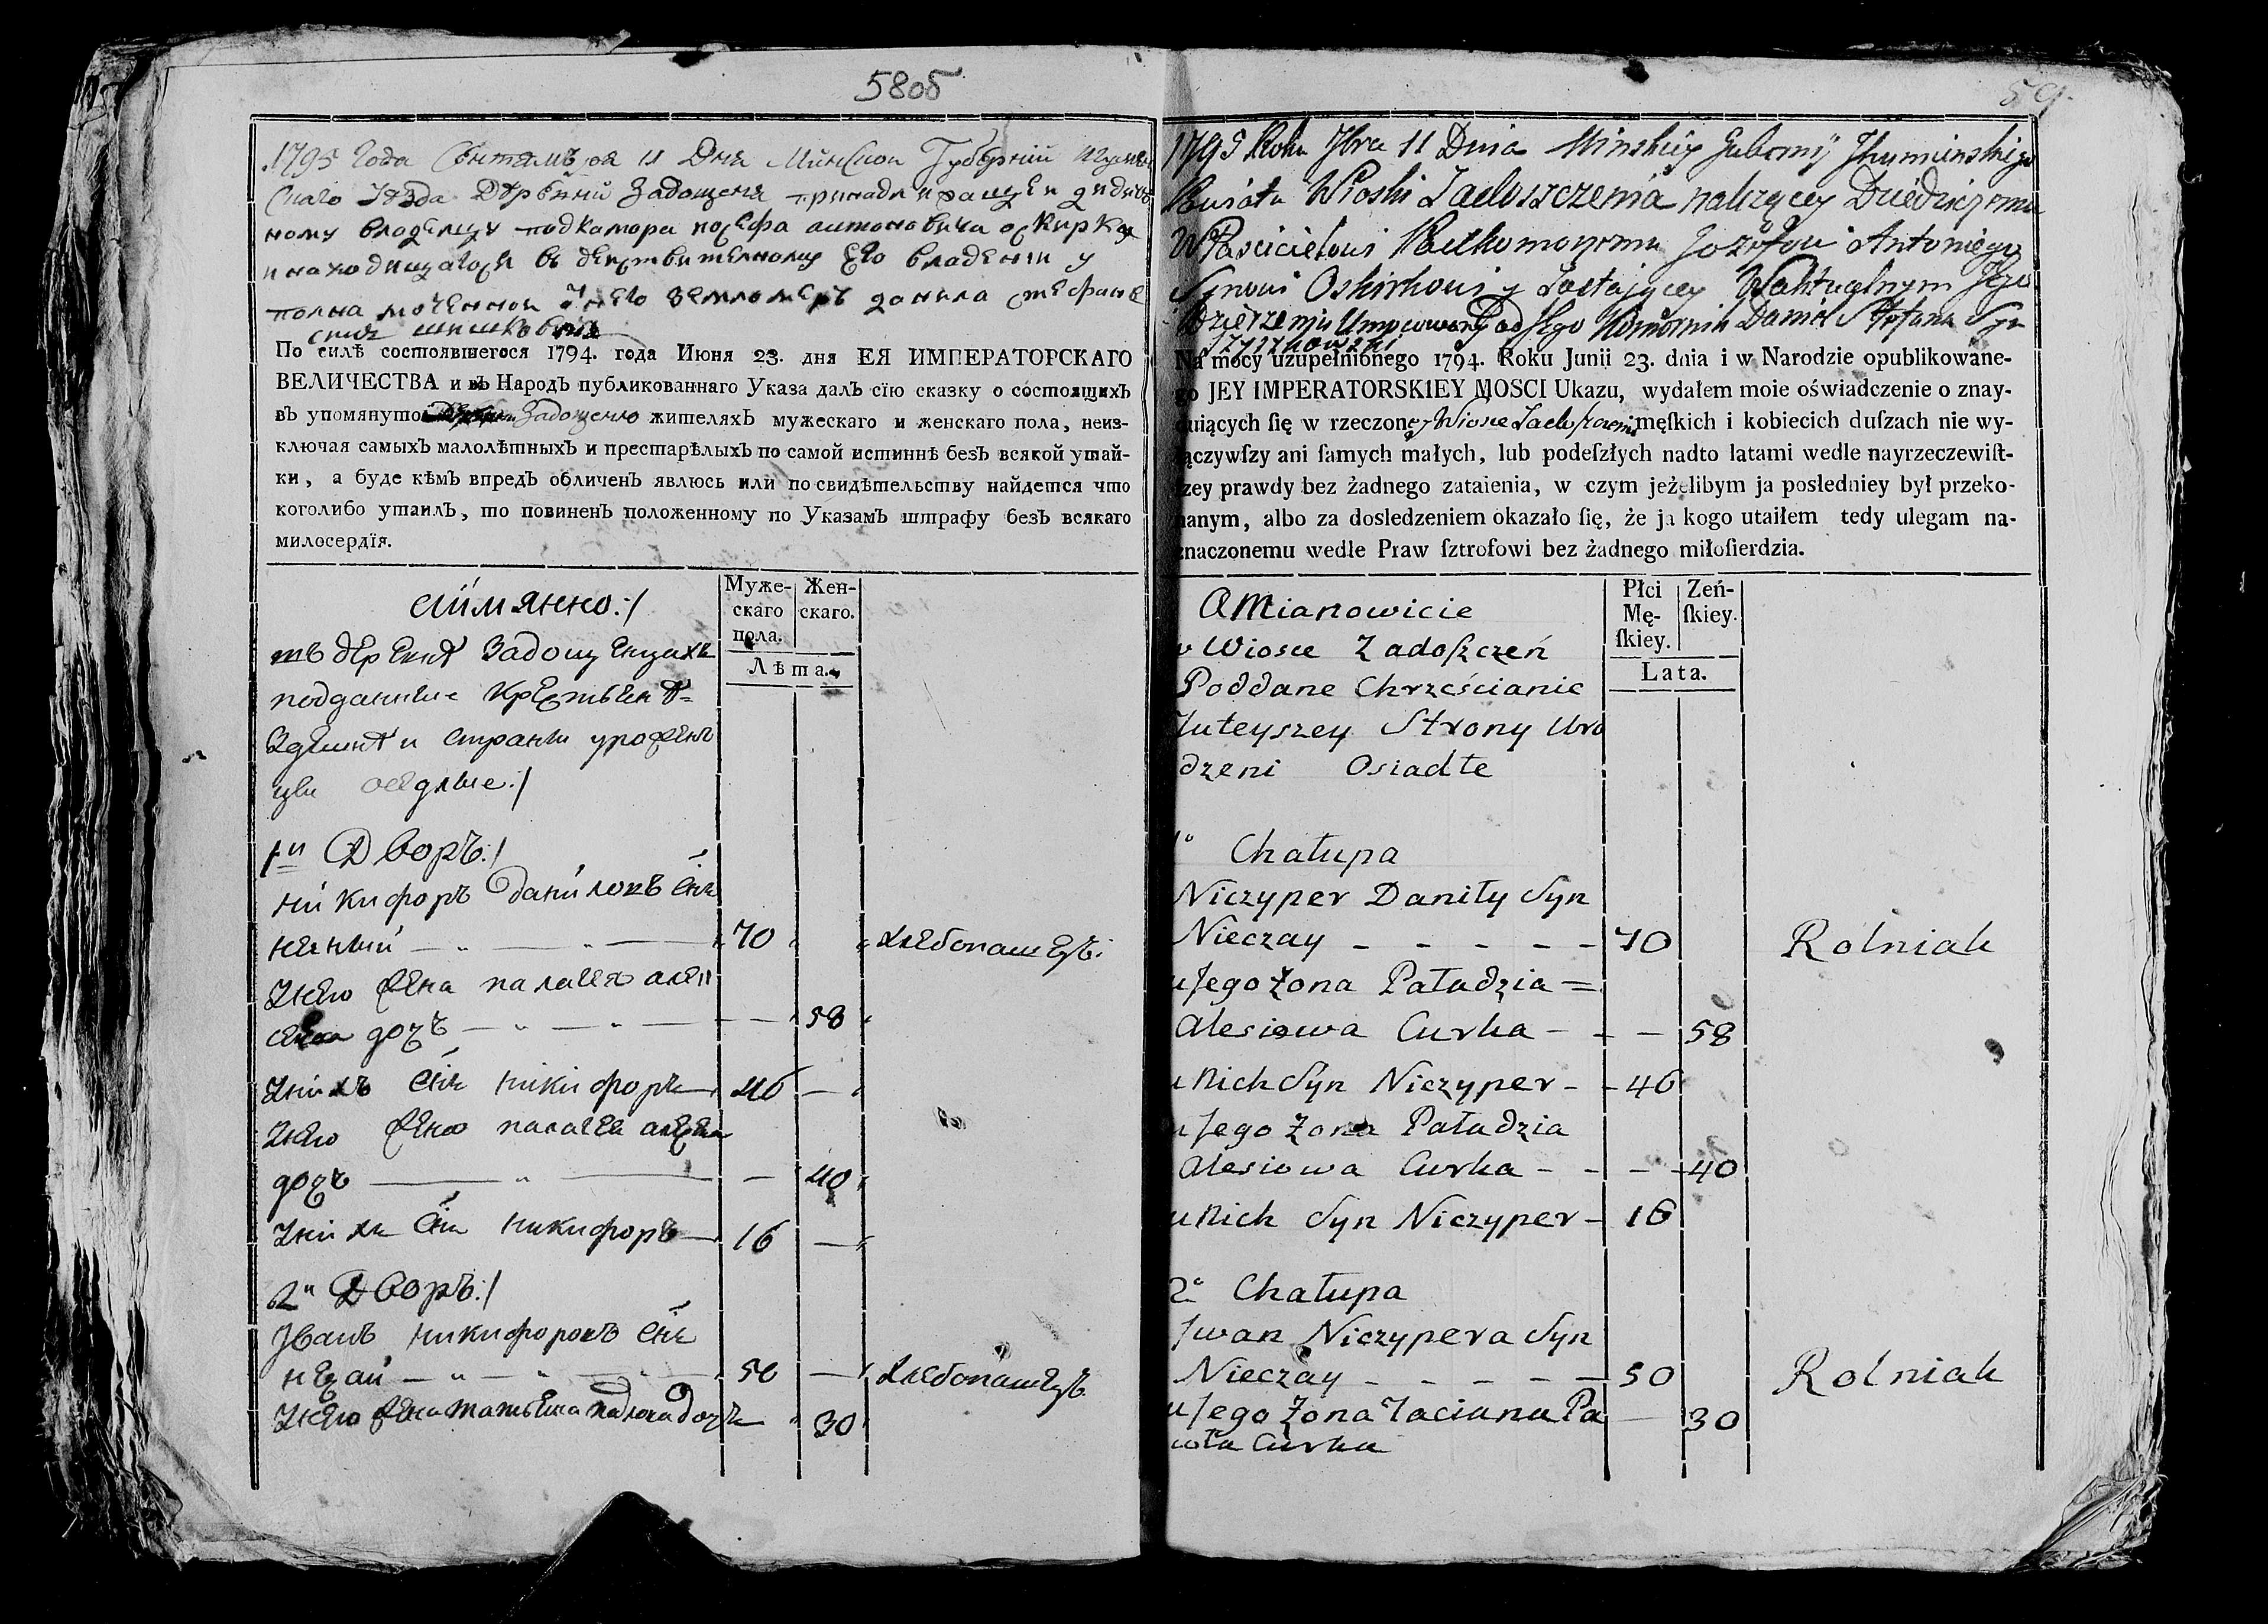 58об
1795 года Сентембря 11 Дня Минской Губернии Игумен
скаго уезда Деревни Задощеня принадлежащей дидич
ному владельцу подкамора иосефа антоновича оскирка
и находищагося въ действителному его владении у
полна моченной от него землемеръ данила стефана
синъ шишковски
По силѣ состоявшегося 1794. года Июня 23. дня ЕЯ ИМПЕРАТОРСКАГО
ВЕЛИЧЕСТВА и въ Народъ публикованнаго Указа далъ сїю сказку о состоящихъ
въ упомянутой Задощеню жителяхъ мужескаго и женскаго пола, неиз-
ключая самыхъ малолѣтныхъ и престарѣлыхъ по самой истиннѣ безъ всякой утай-
ки, а буде кѣмъ впредъ обличенъ явлюсь или по свидѣтельству найдется что
коголибо утаилъ, то повиненъ положенному по Указамъ штрафу безъ всякаго
милосердїя.
Муже-
скаго
пола.
Жен-
скаго.
Лѣта.
аимянно:/
въ деревнѣ Задощенцахъ
подданные крестьянѣ
здешнѣи страны урожен
цы оседлые:/
1й Дворъ:/
никифоръ даниловъ снъ
нечай 70 хлебопашецъ:
У него жена паласея алек
сеева дочъ 58
У нихъ снъ никифоръ 46 —
У него жена паласея алексеева
дочъ — 40
У нихъ снъ никифоръ 16 —
2й Дворъ:/
Иванъ никифоровъ снъ
нечай 50 — хлебопашецъ
У него жена татьяна павлова дочъ 30
59
1795 Roku 7bra 11 Dnia Minskiey Gubernij Ihuminskiego
Kuiatu Wioski Zadoszczenia nalezącey Dziedzicznemu
Włascicielowi Podkomorzemu Jozefowi Antoniego
Synowi Oskirkowi y zostającey W aktualnym Jego
Dzierzeniu Umocowany od Jego Komornik Daniel Stefana Syn
Szyszkowski
Na mocy uzupełnionego 1794. Roku Junii 23. dnia i w Narodzie opublikowane-
go JEY IMPERATORSKIEY MOSCI Ukazu, wydałem moie oświadczenie o znay-
duiących ſię w rzeczoney Wiosce Zadoszczeni męſkich i kobiecich duſzach nie wy-
łączywſzy ani ſamych małych, lub podeſzłych nadto latami wedle nayrzeczewiſt-
ſzey prawdy bez żadnego zataienia, w czym jeżelibym ja posledniey był przeko-
nanym, albo za dosledzeniem okazało ſię, że ja kogo utaiłem tedy ulegam na-
znaczonemu wedle Praw ſztrofowi bez żadnego miłoſierdzia.
Płci
Mę-
ſkiey.
Zeń-
ſkiey.
Lata.
A Mianowicie
w Wiosce Zadoszczeń
Poddane Chrześcianie
Tuteyszey Strony Uro
dzeni Osiadłe
1° Chałupa
Niczyper Daniły Syn
Nieczay - - - - - 70 Rolniak
u Jego Żona Paładzia =
Alesiowa Curka - - — 58
u Nich Syn Niczyper - - 46
u Jego Żona Paładzia
Alesiowa Curka - - — 40
u Nich Syn Niczyper - 16
2° Chałupa
Jwan Niczypera Syn
Nieczay - - - - - 50 Rolniak
u Jego Żona Taciana Pa — 30
wła Curka